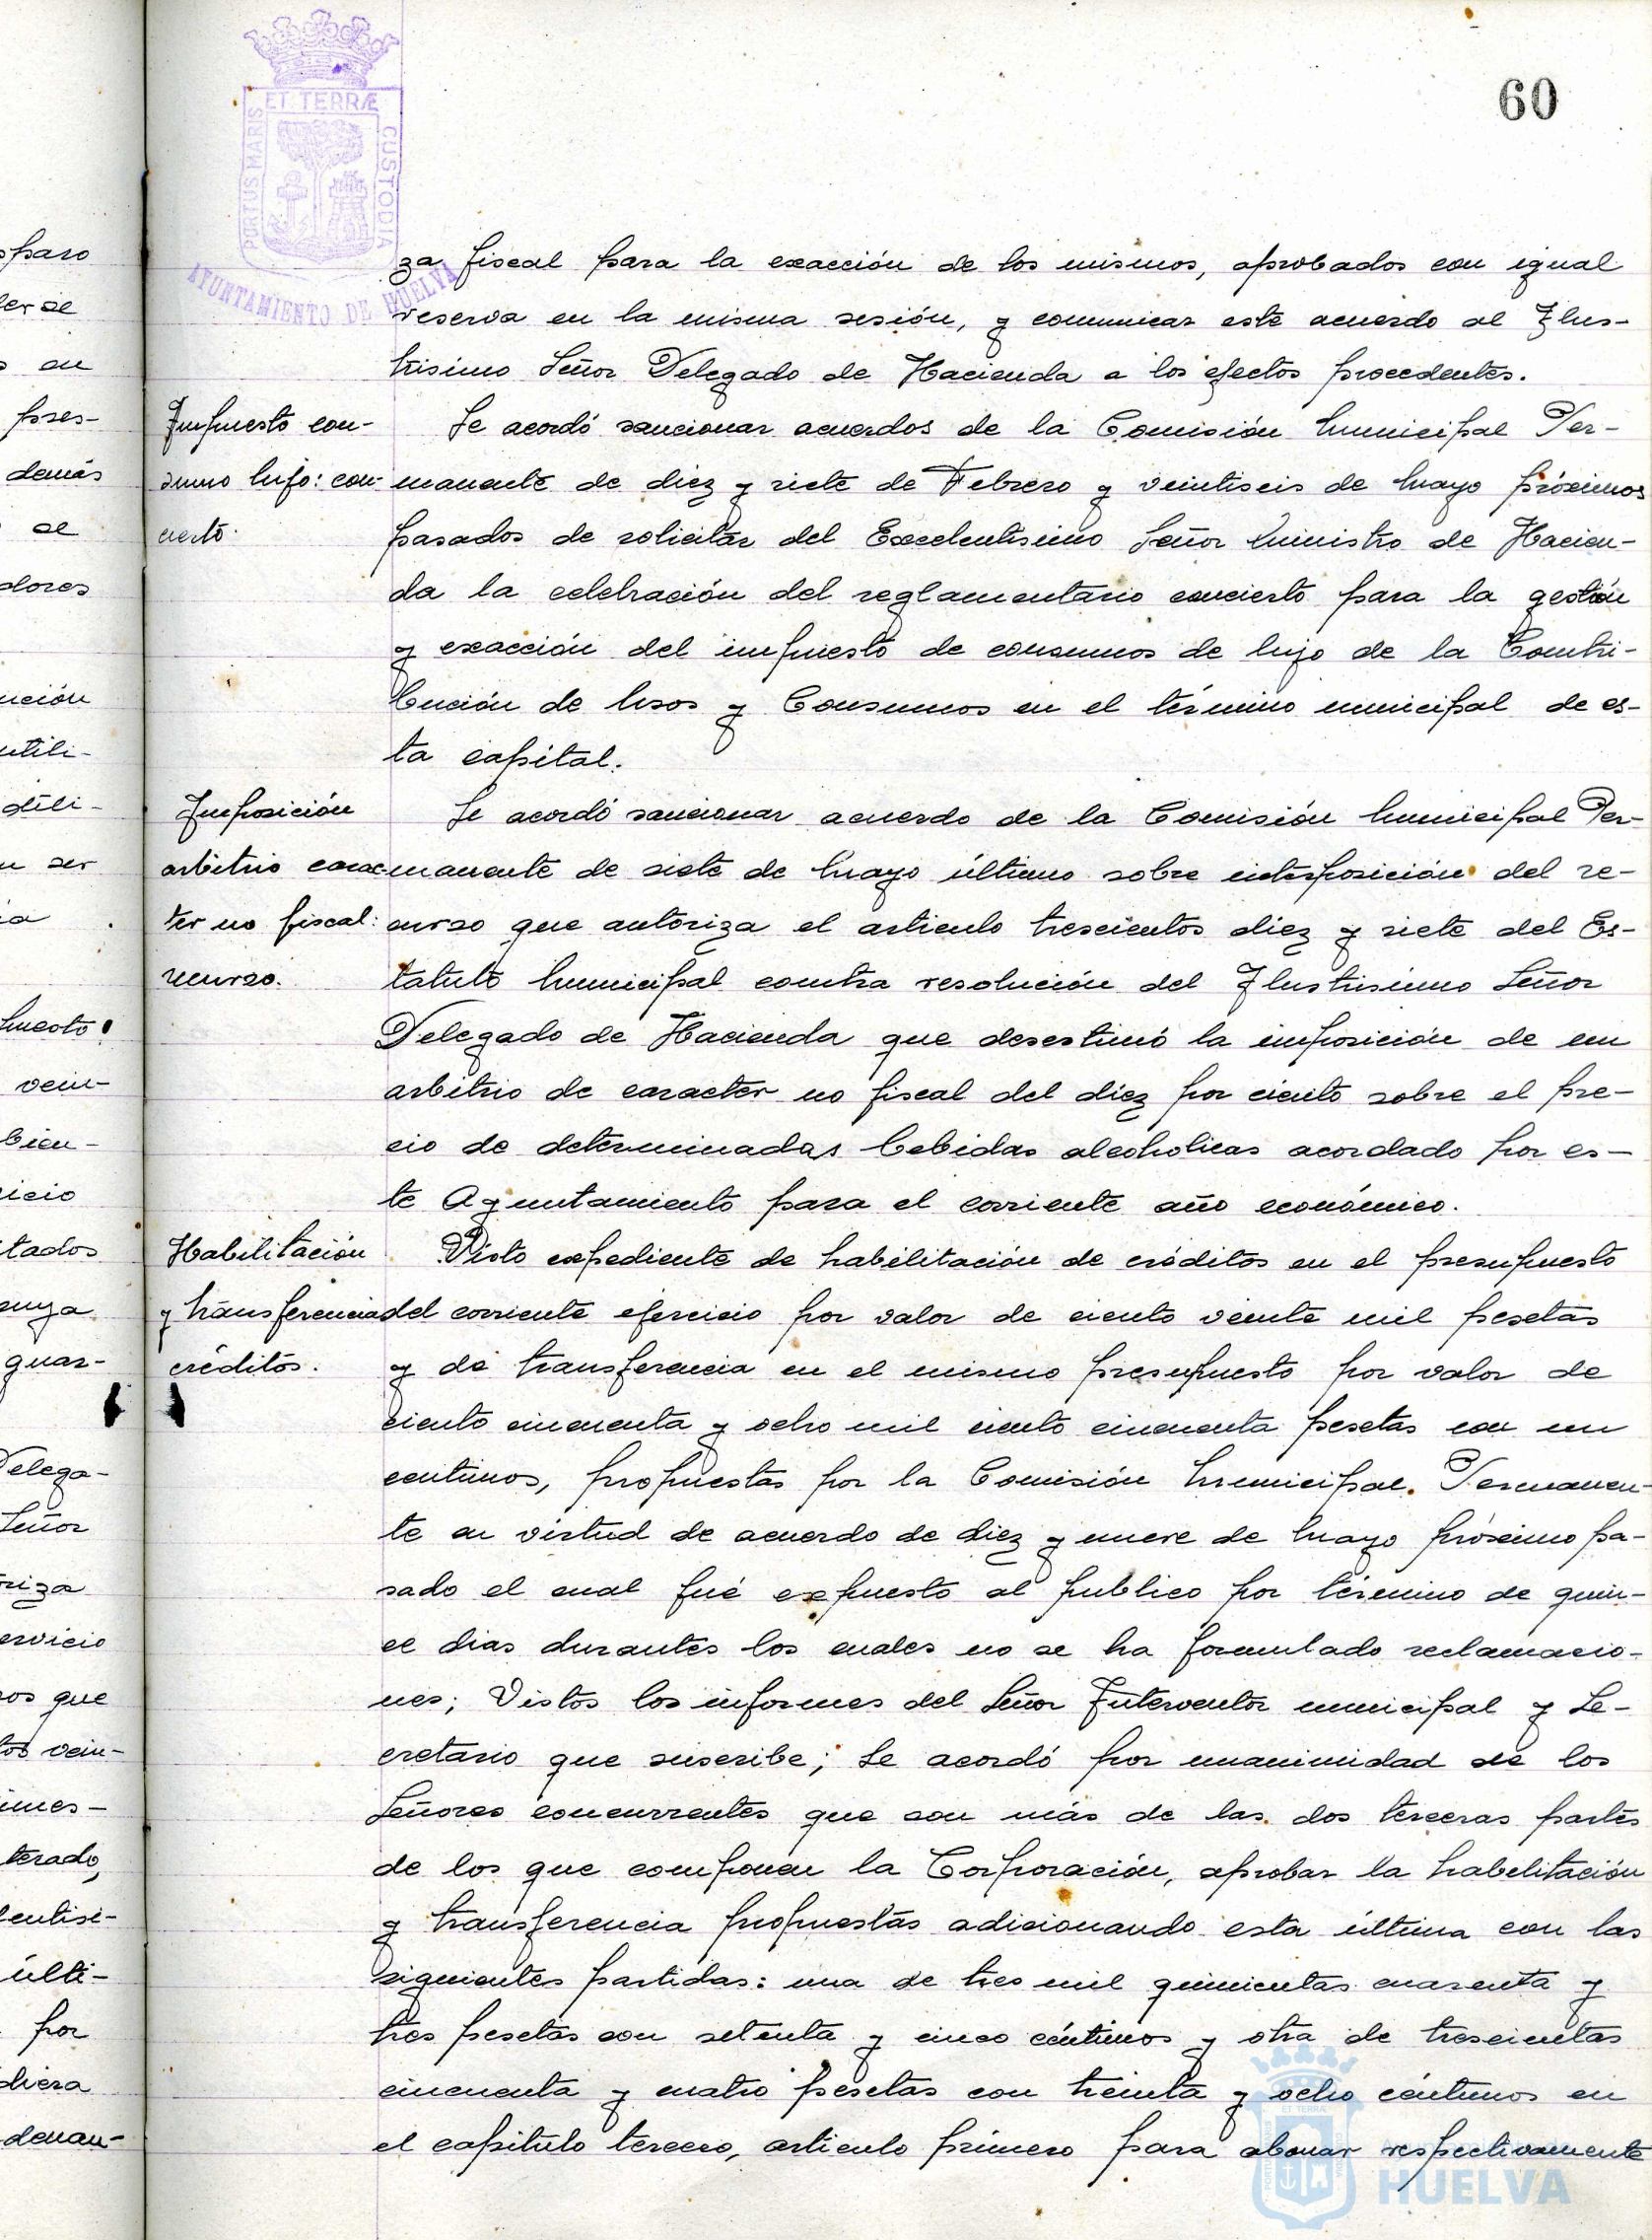 60
ET TERRÆ
PORTUS MARIS
CUSTODIA
AYUNTAMIENTO DE HUELVA
za fiscal para la exacción de los mismos, aprobados con igual
reserva en la misma sesión, y comunicar este acuerdo al Ilus-
trísimo Señor Delegado de Hacienda a los efectos procedentes.
Impuesto con-
sumo lujo: con-
cierto.
Se acordó sancionar acuerdos de la Comisión Municipal Per-
manente de diez y siete de Febrero y veintiseis de Mayo próximos
pasados de solicitar del Excelentísimo Señor Ministro de Hacien-
da la celebración del reglamentario concierto para la gestión
y exacción del impuesto de consumos de lujo de la Contri-
bución de Usos y Consumos en el término municipal de es-
ta capital.
Imposición
arbitrio carac-
ter no fiscal:
recurso.
Se acordó sancionar acuerdo de la Comisión Municipal Per-
manente de siete de Mayo último sobre interposición del re-
curso que autoriza el artículo trescientos diez y siete del Es-
tatuto Municipal contra resolución del Ilustrísimo Señor
Delegado de Hacienda que desestimó la imposición de un
arbitrio de caracter no fiscal del diez por ciento sobre el pre-
cio de determinadas bebidas alcoholicas acordado por es-
te Ayuntamiento para el corriente año económico.
Habilitación
y transferencia
créditos.
Visto expediente de habilitación de créditos en el presupuesto
del corriente ejercicio por valor de ciento veinte mil pesetas
y de transferencia en el mismo presupuesto por valor de
ciento cincuenta y ocho mil ciento cincuenta pesetas con un
centimos, propuestas por la Comisión Municipal Permanen-
te en virtud de acuerdo de diez y nueve de Mayo próximo pa-
sado el cual fué expuesto al publico por término de quin-
ce dias durantes los cuales no se ha formulado reclamacio-
nes; Vistos los informes del Señor Interventor municipal y Se-
cretario que suscribe; Se acordó por unanimidad de los
Señores concurrentes que son más de las dos terceras partes
de los que componen la Corporación, aprobar la habilitación
y transferencia propuestas adicionando esta última con las
siguientes partidas: una de tres mil quinientas cuarenta y
tres pesetas con setenta y cinco céntimos y otra de trescientas
cincuenta y cuatro pesetas con treinta y ocho céntimos en
el capítulo tercero, artículo primero para abonar respectivamente
HUELVA